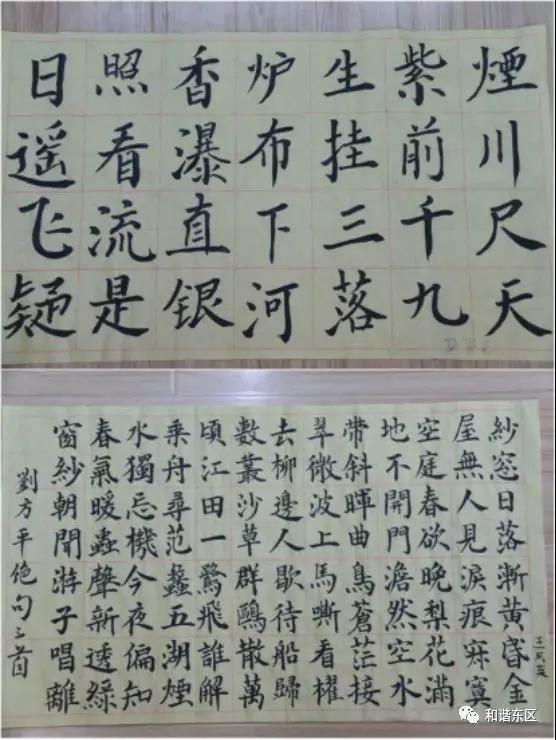 日照香炉生紫煙
遥看瀑布挂前川
飞流直下三千尺
疑是银河落九天
紗窓日落漸黄昏金
屋無人見淚痕寂寞
空庭春欲晚梨花滿
地不開門澹然空水
帶斜暉曲鳥蒼茫接
翠微波上馬嘶看櫂
去柳邊人歇待船歸
數叢沙草群鷗散萬
頃江田一鷺飛誰解
乘舟尋范蠡五湖煙
水獨忘機今夜偏知
春氣暖蟲聲新透綠
窗紗朝聞游子唱離
劉方平绝句三首
和谐东区